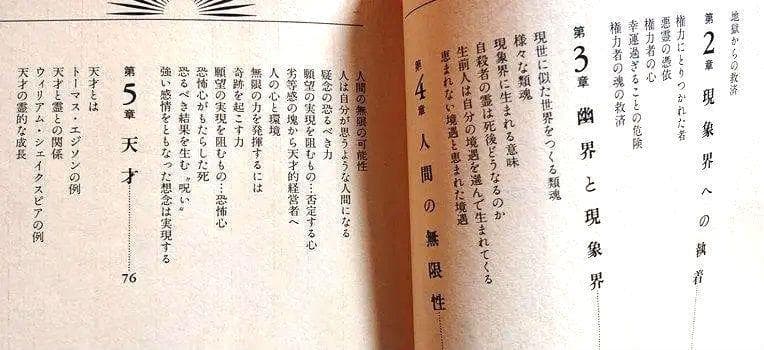 地獄からの救済
第2章 現象界への執着
権力にとりつかれた者
悪霊の憑依
権力者の心
幸運過ぎることの危険
権力者の魂の救済
第3章 幽界と現象界
現世に似た世界をつくる類魂
様々な類魂
現象界に生まれる意味
自殺者の霊は死後どうなるのか
生前人は自分の境遇を選んで生まれてくる
恵まれない境遇と恵まれた境遇
第4章 人間の無限性
人間の無限の可能性
人は自分が思うような人間になる
疑念の恐るべき力
願望の実現を阻むもの…否定する心
劣等感の塊から天才的経営者へ
人の心と環境
無限の力を発揮するには
奇跡を起こす力
願望の実現を阻むもの…恐怖心
恐怖心がもたらした死
恐るべき結果を生む〝呪い〟
強い感情をともなった想念は実現する
第5章 天才 76
天才とは
トーマス・エジソンの例
天才と霊との関係
ウィリアム・シェイクスピアの例
天才の霊的な成長